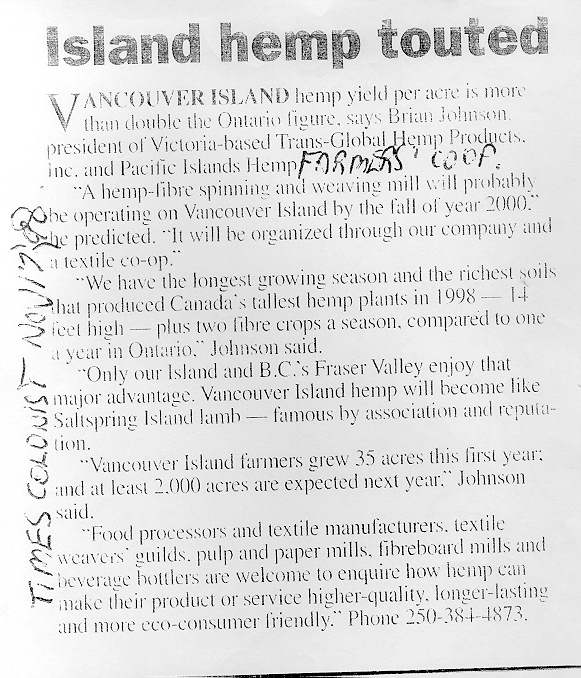 Island hemp touted
VANCOUVER ISLAND hemp yield per acre is more
than double the Ontario figure, says Brian Johnson,
president of Victoria-based Trans-Global Hemp Products,
Inc. and Pacific Islands Hemp FARMERS' COOP.
"A hemp-fibre spinning and weaving mill will probably
be operating on Vancouver Island by the fall of year 2000."
he predicted. "It will be organized through our company and
a textile co-op."
"We have the longest growing season and the richest soils
that produced Canada's tallest hemp plants in 1998 — 14
feet high — plus two fibre crops a season, compared to one
a year in Ontario," Johnson said.
"Only our Island and B.C.'s Fraser Valley enjoy that
major advantage. Vancouver Island hemp will become like
Saltspring Island lamb — famous by association and reputa-
tion.
"Vancouver Island farmers grew 35 acres this first year;
and at least 2,000 acres are expected next year." Johnson
said.
"Food processors and textile manufacturers, textile
weavers' guilds, pulp and paper mills, fibreboard mills and
beverage bottlers are welcome to enquire how hemp can
make their product or service higher-quality, longer-lasting
and more eco-consumer friendly." Phone 250-384-4873.
TIMES COLONIST NOV